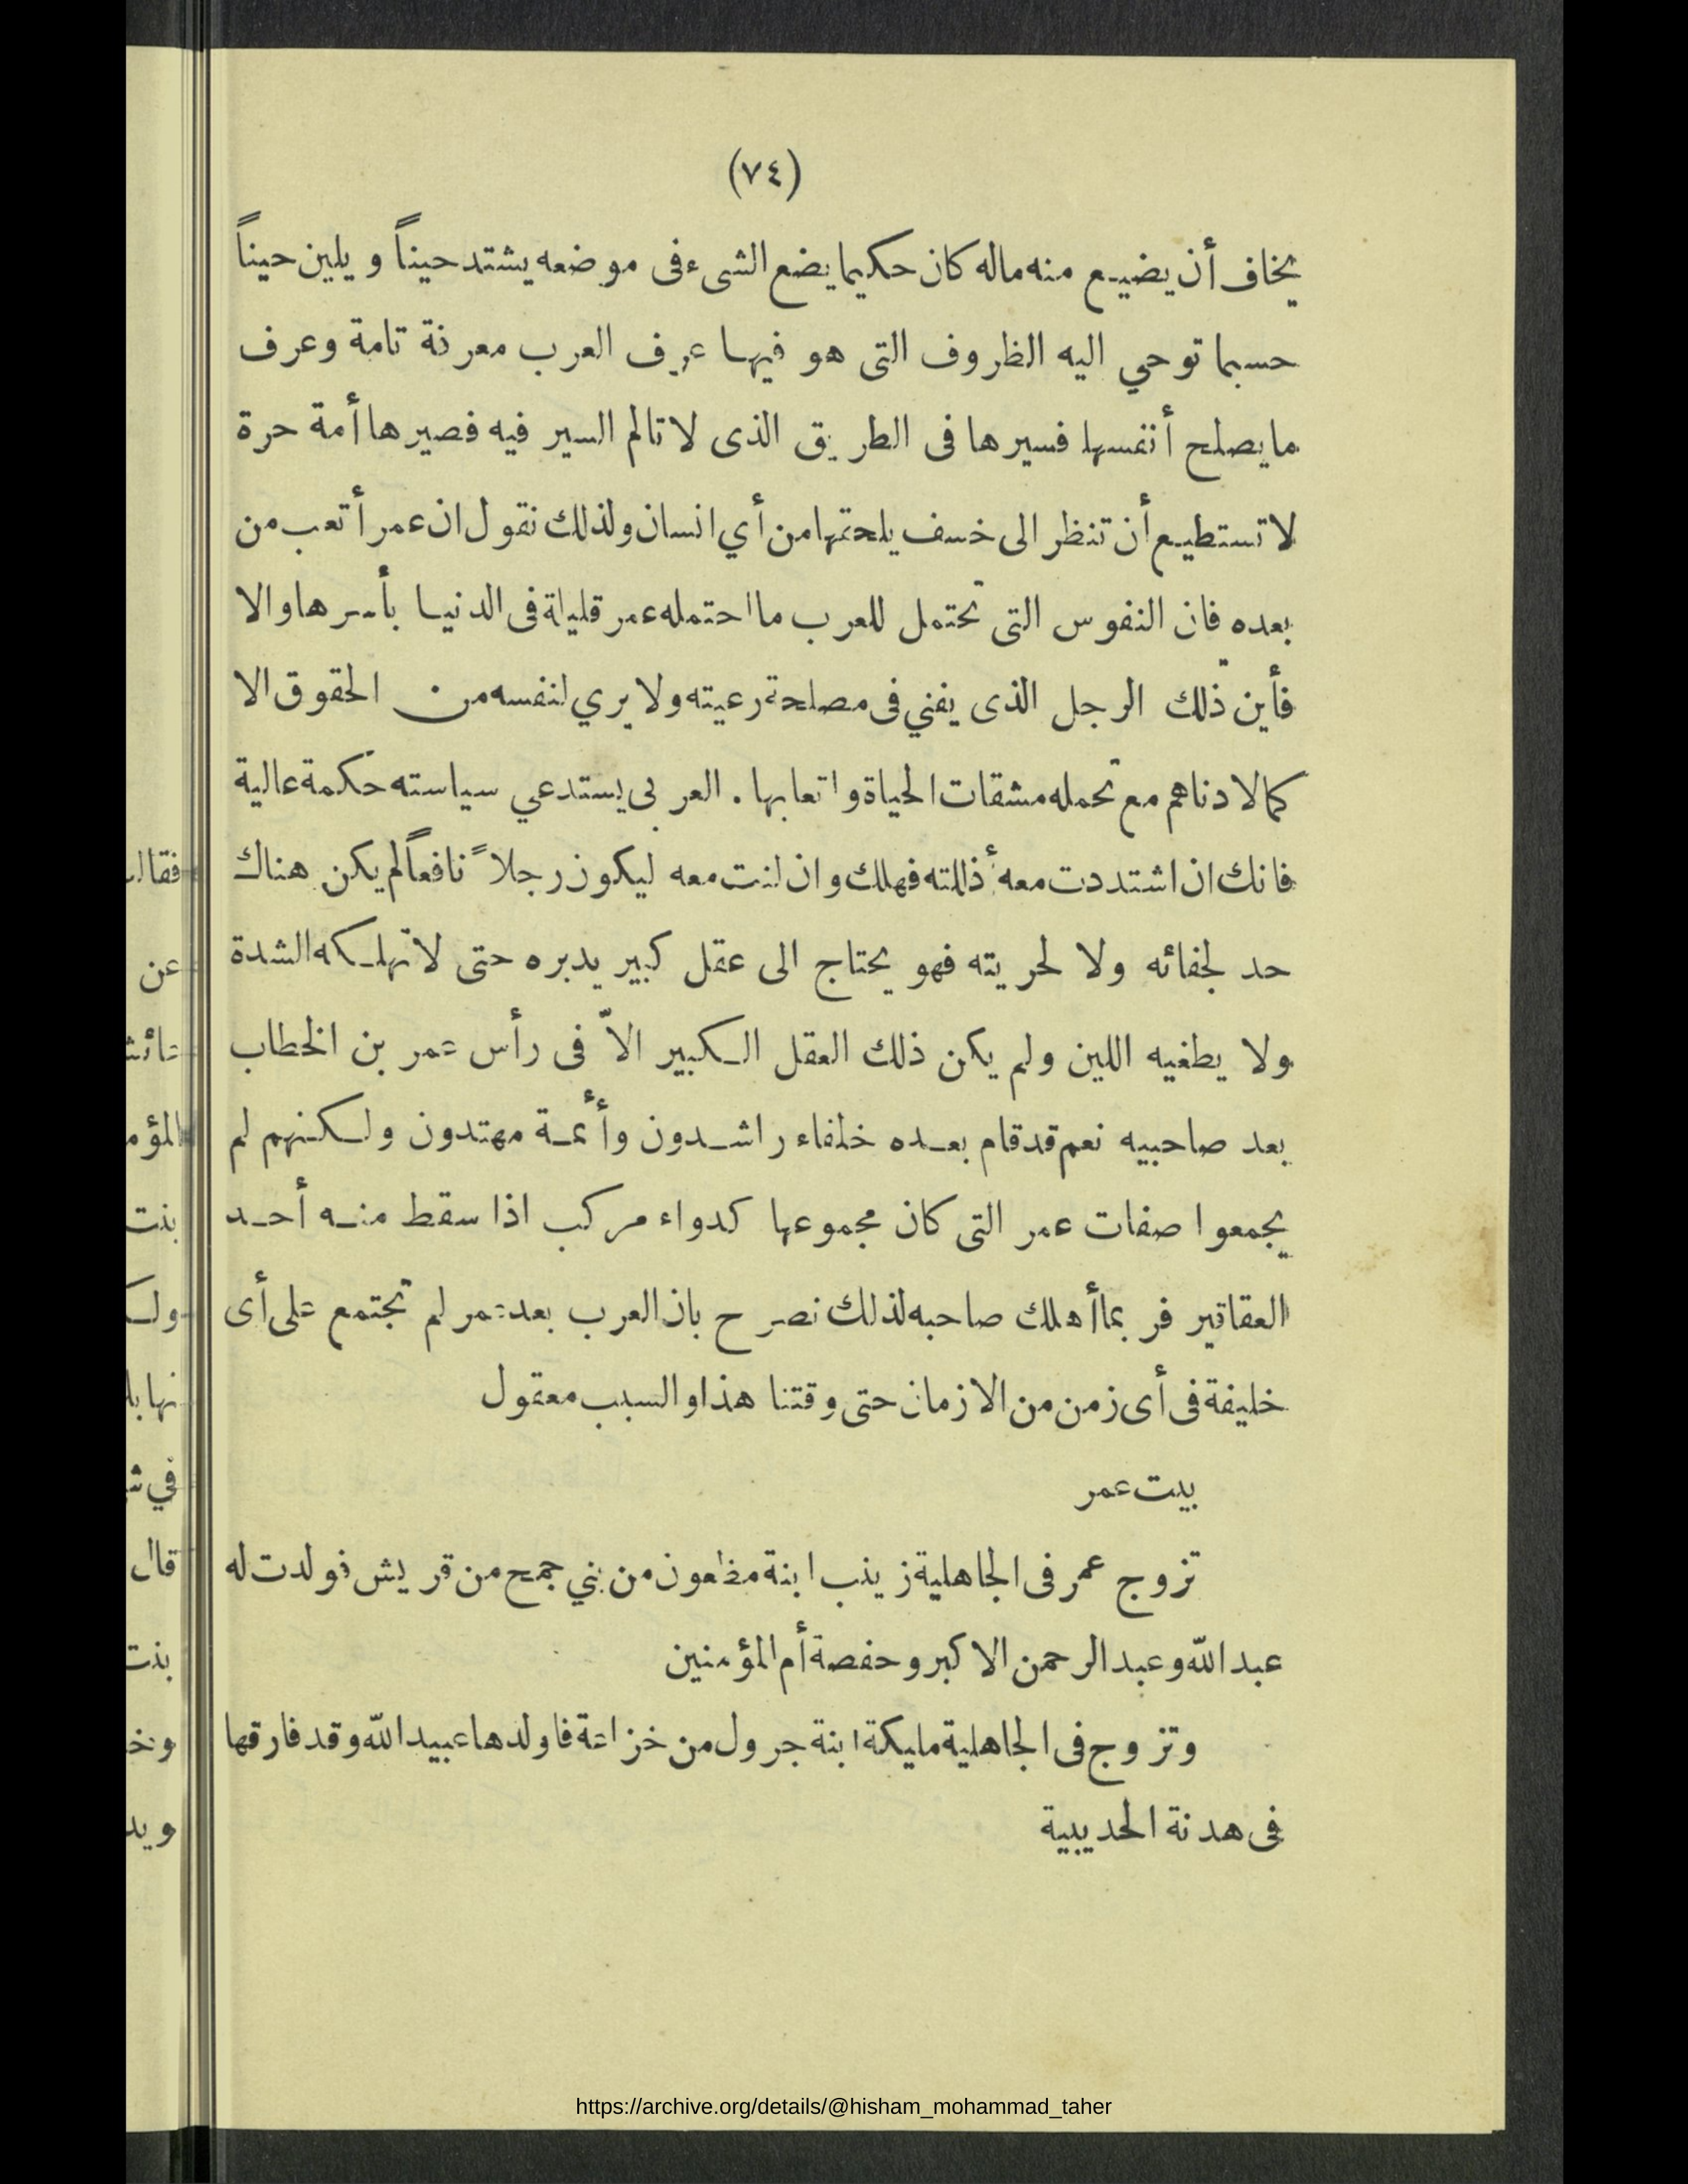 (٧٤)
يخاف أن يضيع منه ماله كان حكيما يضع الشىء فى موضعه يشتد حيناً ويلين حيناً
حسبما توحي اليه الظروف التى هو فيها عرف العرب معرفة تامة وعرف
ما يصلح أنفسها فسيرها فى الطريق الذى لا تالم السير فيه فصيرها أمة حرة
لا تستطيع أن تنظر الى خسف يلحقها من أي انسان ولذلك نقول ان عمر أتعب من
بعده فان النفوس التى تحتمل للعرب ما احتمله عمر قليلة فى الدنيا بأسرها والا
فأين ذلك الرجل الذى يفني فى مصلحة رعيته ولا يري لنفسه من الحقوق الا
كما لادناهم مع تحمله مشقات الحياة واتعابها . العربى يستدعي سياسته حكمة عالية
فانك ان اشتددت معه أذللته فهلك وان لنت معه ليكون رجلاً نافعاً لم يكن هناك
حد لجفائه ولا لحريته فهو يحتاج الى عقل كبير يدبره حتى لا تهلكه الشدة
ولا يطغيه اللين ولم يكن ذلك العقل الكبير الاّ فى رأس عمر بن الخطاب
بعد صاحبيه نعم قد قام بعده خلفاء راشدون وأئمة مهتدون ولكنهم لم
يجمعوا صفات عمر التى كان مجموعها كدواء مركب اذا سقط منه أحد
العقاقير فربما أهلك صاحبه لذلك نصرح بان العرب بعد عمر لم تجتمع على أى
خليفة فى أى زمن من الازمان حتى وقتنا هذا والسبب معقول
بيت عمر
تزوج عمر فى الجاهلية زينب ابنة مظعون من بني جمح من قريش فولدت له
عبد اللّه وعبد الرحمن الاكبر وحفصة أم المؤمنين
وتزوج فى الجاهلية مليكة ابنة جرول من خزاعة فاولدها عبيد اللّه وقد فارقها
فى هدنة الحديبية
https://archive.org/details/@hisham_mohammad_taher